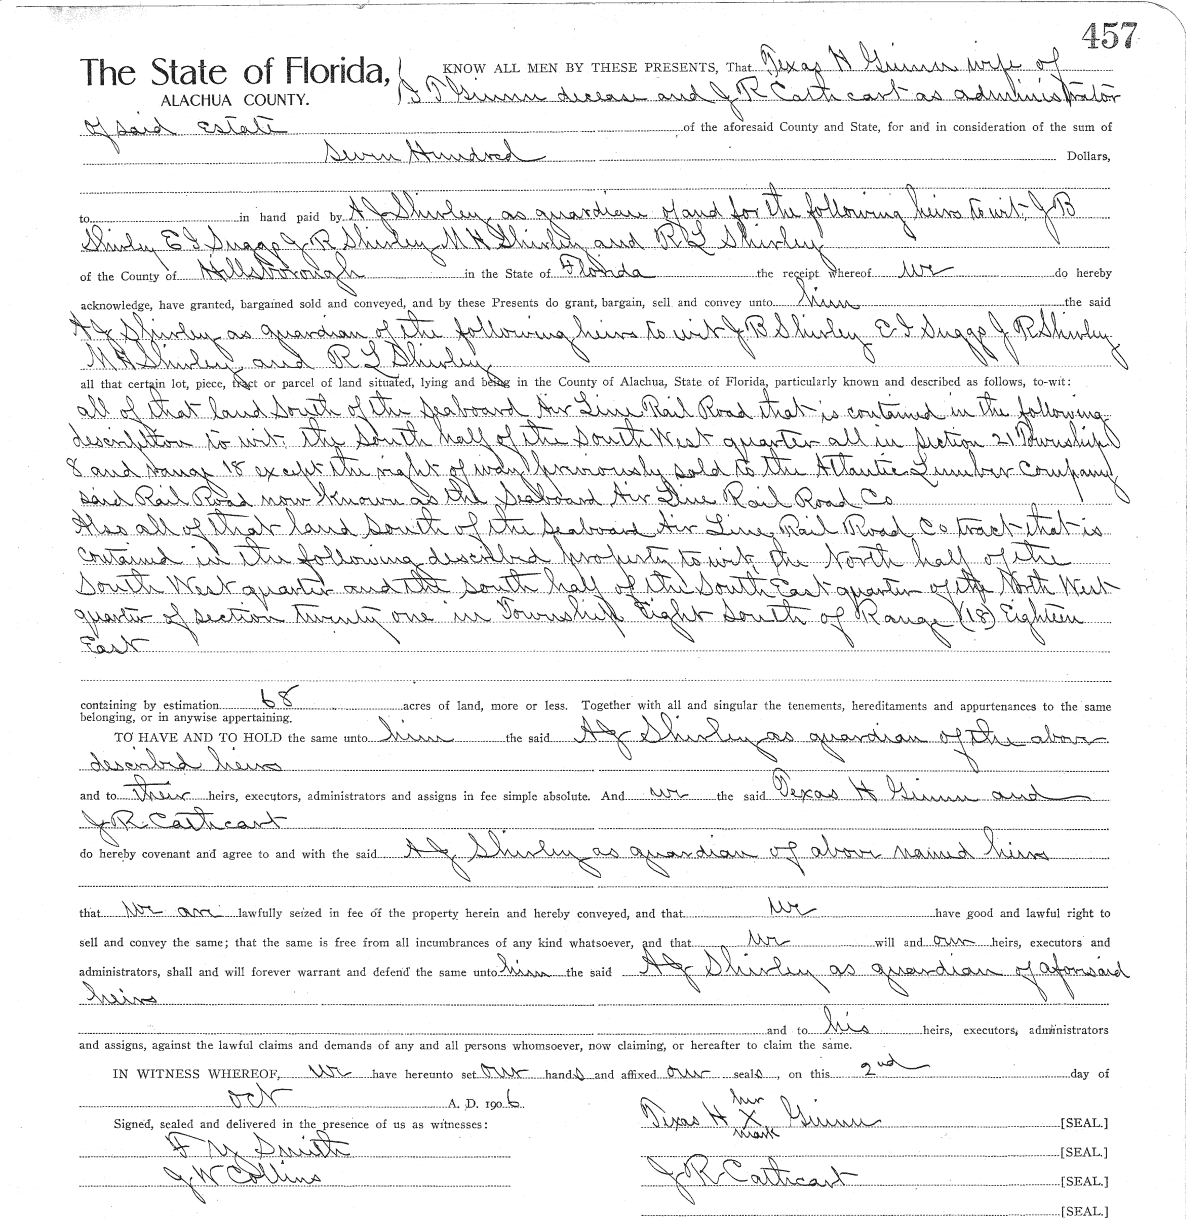 457
The State of Florida, KNOW ALL MEN BY THESE PRESENTS, That Texas H Ginnn wife of
ALACHUA COUNTY. J T Ginnn decease and J R Cathcart as administrator
of said Estate of the aforesaid County and State, for and in consideration of the sum of
Seven Hundred Dollars,
to in hand paid by A J Shirley as guardian of and for the following heirs to wit, J B
Shirley E I Suggs J R Shirley M H Shirley and R L Shirley
of the County of Hillsborough in the State of Florida the receipt whereof we do hereby
acknowledge, have granted, bargained sold and conveyed, and by these Presents do grant, bargain, sell and convey unto him the said
A J Shirley as guardian of the following heirs to wit J B Shirley E I Suggs J R Shirley
M H Shirley and R L Shirley
all that certain lot, piece, tract or parcel of land situated, lying and being in the County of Alachua, State of Florida, particularly known and described as follows, to-wit:
all of that land South of the Seaboard Air Line Rail Road that is contained in the following
description to wit: the South half of the South West quarter all in Section 21 Township
8 and range 18 except the right of way previously sold to the Atlantic Lumber Company
said Rail Road now known as the Seaboard Air Line Rail Road Co
Also all of that land South of the Seaboard Air Line Rail Road Co tract that is
contained in the following described property to wit, the North half of the
South West quarter and the South half of the South East quarter of the North West
quarter of section twenty one in Township Eight South of Range (18) Eighteen
East
containing by estimation 68 acres of land, more or less. Together with all and singular the tenements, hereditaments and appurtenances to the same
belonging, or in anywise appertaining.
TO HAVE AND TO HOLD the same unto him the said A J Shirley as guardian of the above
described heirs
and to their heirs, executors, administrators and assigns in fee simple absolute. And we the said Texas H Ginnn and
J R Cathcart
do hereby covenant and agree to and with the said A J Shirley as guardian of above named heirs
that we are lawfully seized in fee of the property herein and hereby conveyed, and that we have good and lawful right to
sell and convey the same; that the same is free from all incumbrances of any kind whatsoever, and that we will and our heirs, executors and
administrators, shall and will forever warrant and defend the same unto him the said A J Shirley as guardian of aforesaid
heirs
and to his heirs, executors, administrators
and assigns, against the lawful claims and demands of any and all persons whomsoever, now claiming, or hereafter to claim the same.
IN WITNESS WHEREOF, we have hereunto set our hands and affixed our seals, on this 2nd day of
Oct A. D. 1906
her
Signed, sealed and delivered in the presence of us as witnesses: Texas H X Ginnn [SEAL.]
mark
F M Smith [SEAL.]
J W Collins J R Cathcart [SEAL.]
[SEAL.]